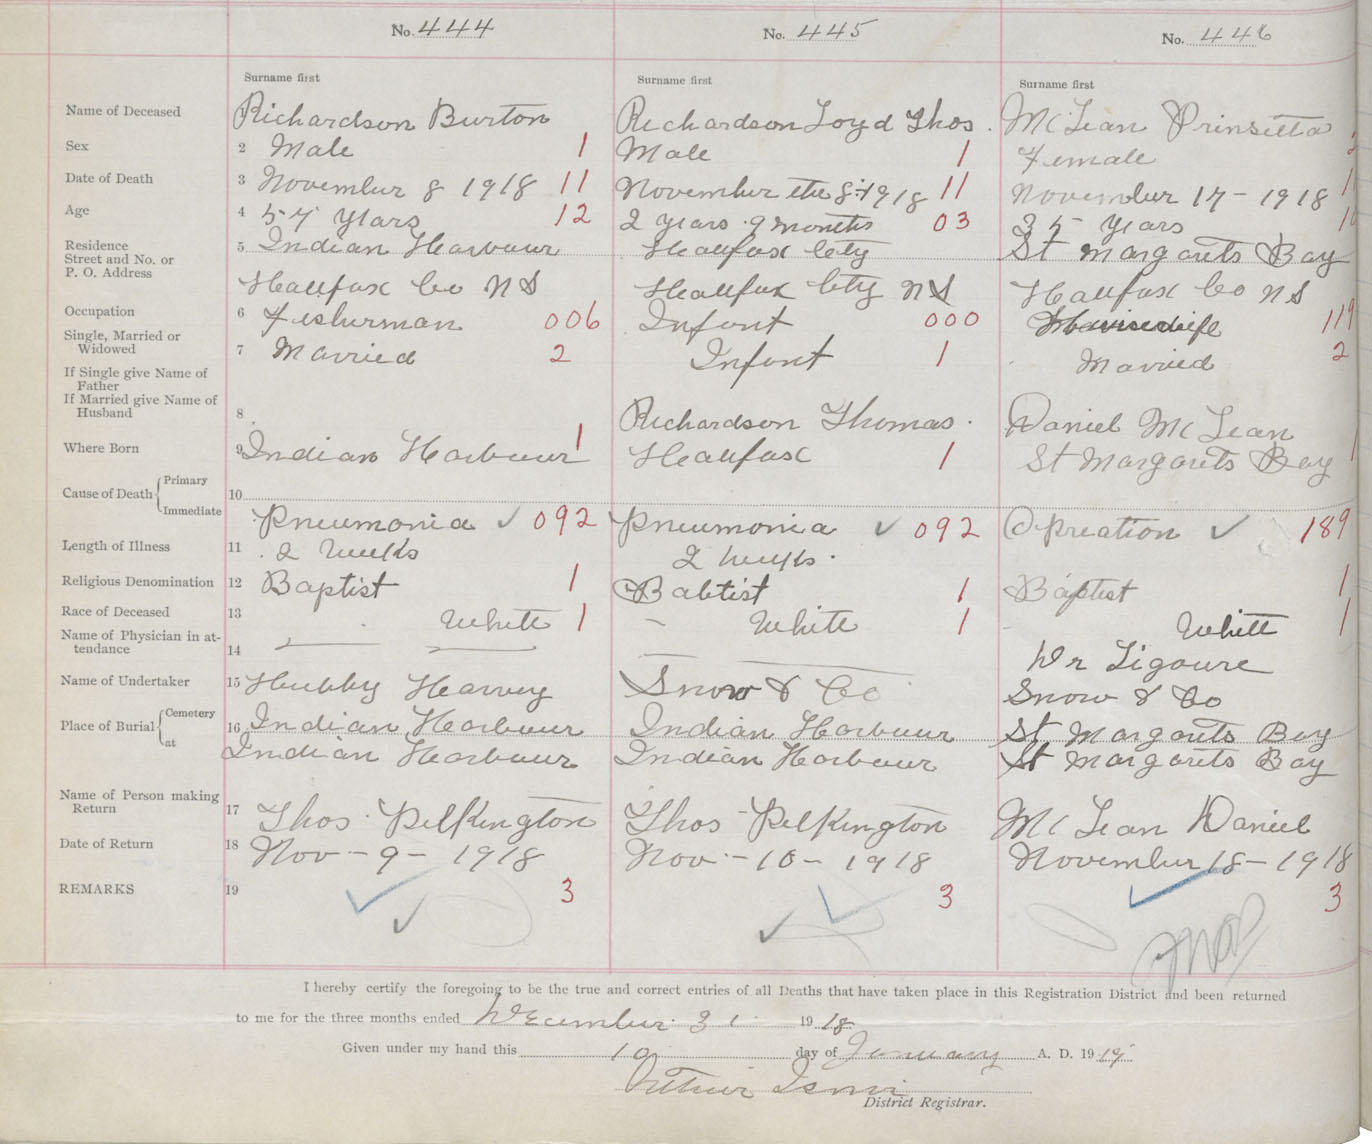 No. 444 No. 445 No. 446
Surname first Surname first Surname first
Name of Deceased 1 Richardson Burton Richardson Loyd Thos. McLean Prinsetta
Sex 2 Male 1 Male 1 Female
Date of Death 3 November 8 1918 11 November the 8 1918 11 November 17 - 1918 1
Age 4 57 Years 12 2 years 9 months 03 35 Years 1
Residence 5 Indian Harbour Halifax City St Margarets Bay
Street and No. or
P. O. Address Halifax Co N S Halifax City N S Halifax Co N S
Occupation 6 Fisherman 006 Infant 000 119
Single, Married or
Widowed 7 Married 2 Infant 1 Married 2
If Single give Name of
Father
If Married give Name of
Husband 8 Richardson Thomas. Daniel McLean
Where Born 9 Indian Harbour 1 Halifax 1 St Margarets Bay 1
Cause of Death Primary 10
Immediate Pneumonia ✓ 092 Pneumonia ✓ 092 Opreation ✓ 189
Length of Illness 11 2 weeks 2 weeks.
Religious Denomination 12 Baptist 1 Babtist 1 Baptist 1
Race of Deceased 13 White 1 White 1 White 1
Name of Physician in at-
tendance 14 Dr Ligoure
Name of Undertaker 15 Hubby Harvey Snow & Co Snow & Co
Place of Burial Cemetery 16 Indian Harbour Indian Harbour St Margarets Bay
at Indian Harbour Indian Harbour St Margarets Bay
Name of Person making
Return 17 Thos Pelkington Thos Pelkington McLean Daniel
Date of Return 18 Nov - 9 - 1918 Nov - 10 - 1918 November 18 - 1918
REMARKS 19 3 3 3
I hereby certify the foregoing to be the true and correct entries of all Deaths that have taken place in this Registration District and been returned
to me for the three months ended December 31 1918
Given under my hand this 10 day of January A. D. 1919
Arthur
District Registrar.